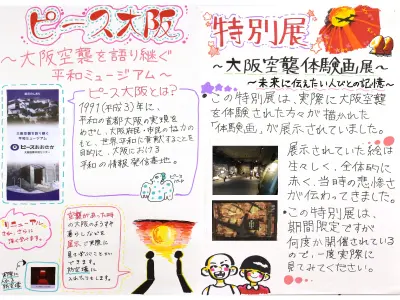 ピース大阪
～大阪空襲を語り継ぐ
平和ミュージアム～
ピース大阪とは?
1991(平成3)年に、
平和の首都大阪の実現を
めざし、大阪府民・市民の協力の
もと、世界平和に貢献することを
目的に、大阪における
平和の情報発信基地。
大阪空襲を語り継ぐ
平和ミュージアム
ピースおおさか
リニューアル
空襲があった時
の大阪のようすや
暮らしなどを
展示し、実際に
見て学ぶことが
できます。
防空壕に
入れたりもします。
実際に
特別展
～大阪空襲体験画展～
～未来に伝えたい人びとの記憶～
・この特別展は、実際に大阪空襲
を体験された方々が描かれた
「体験画」が展示されていました。
展示されていた絵は
生々しく、全体的に
赤く、当時の悲惨さ
が伝わってきました。
・この特別展は、
期間限定ですが
何度か開催されている
ので、一度実際に
見てみてください。